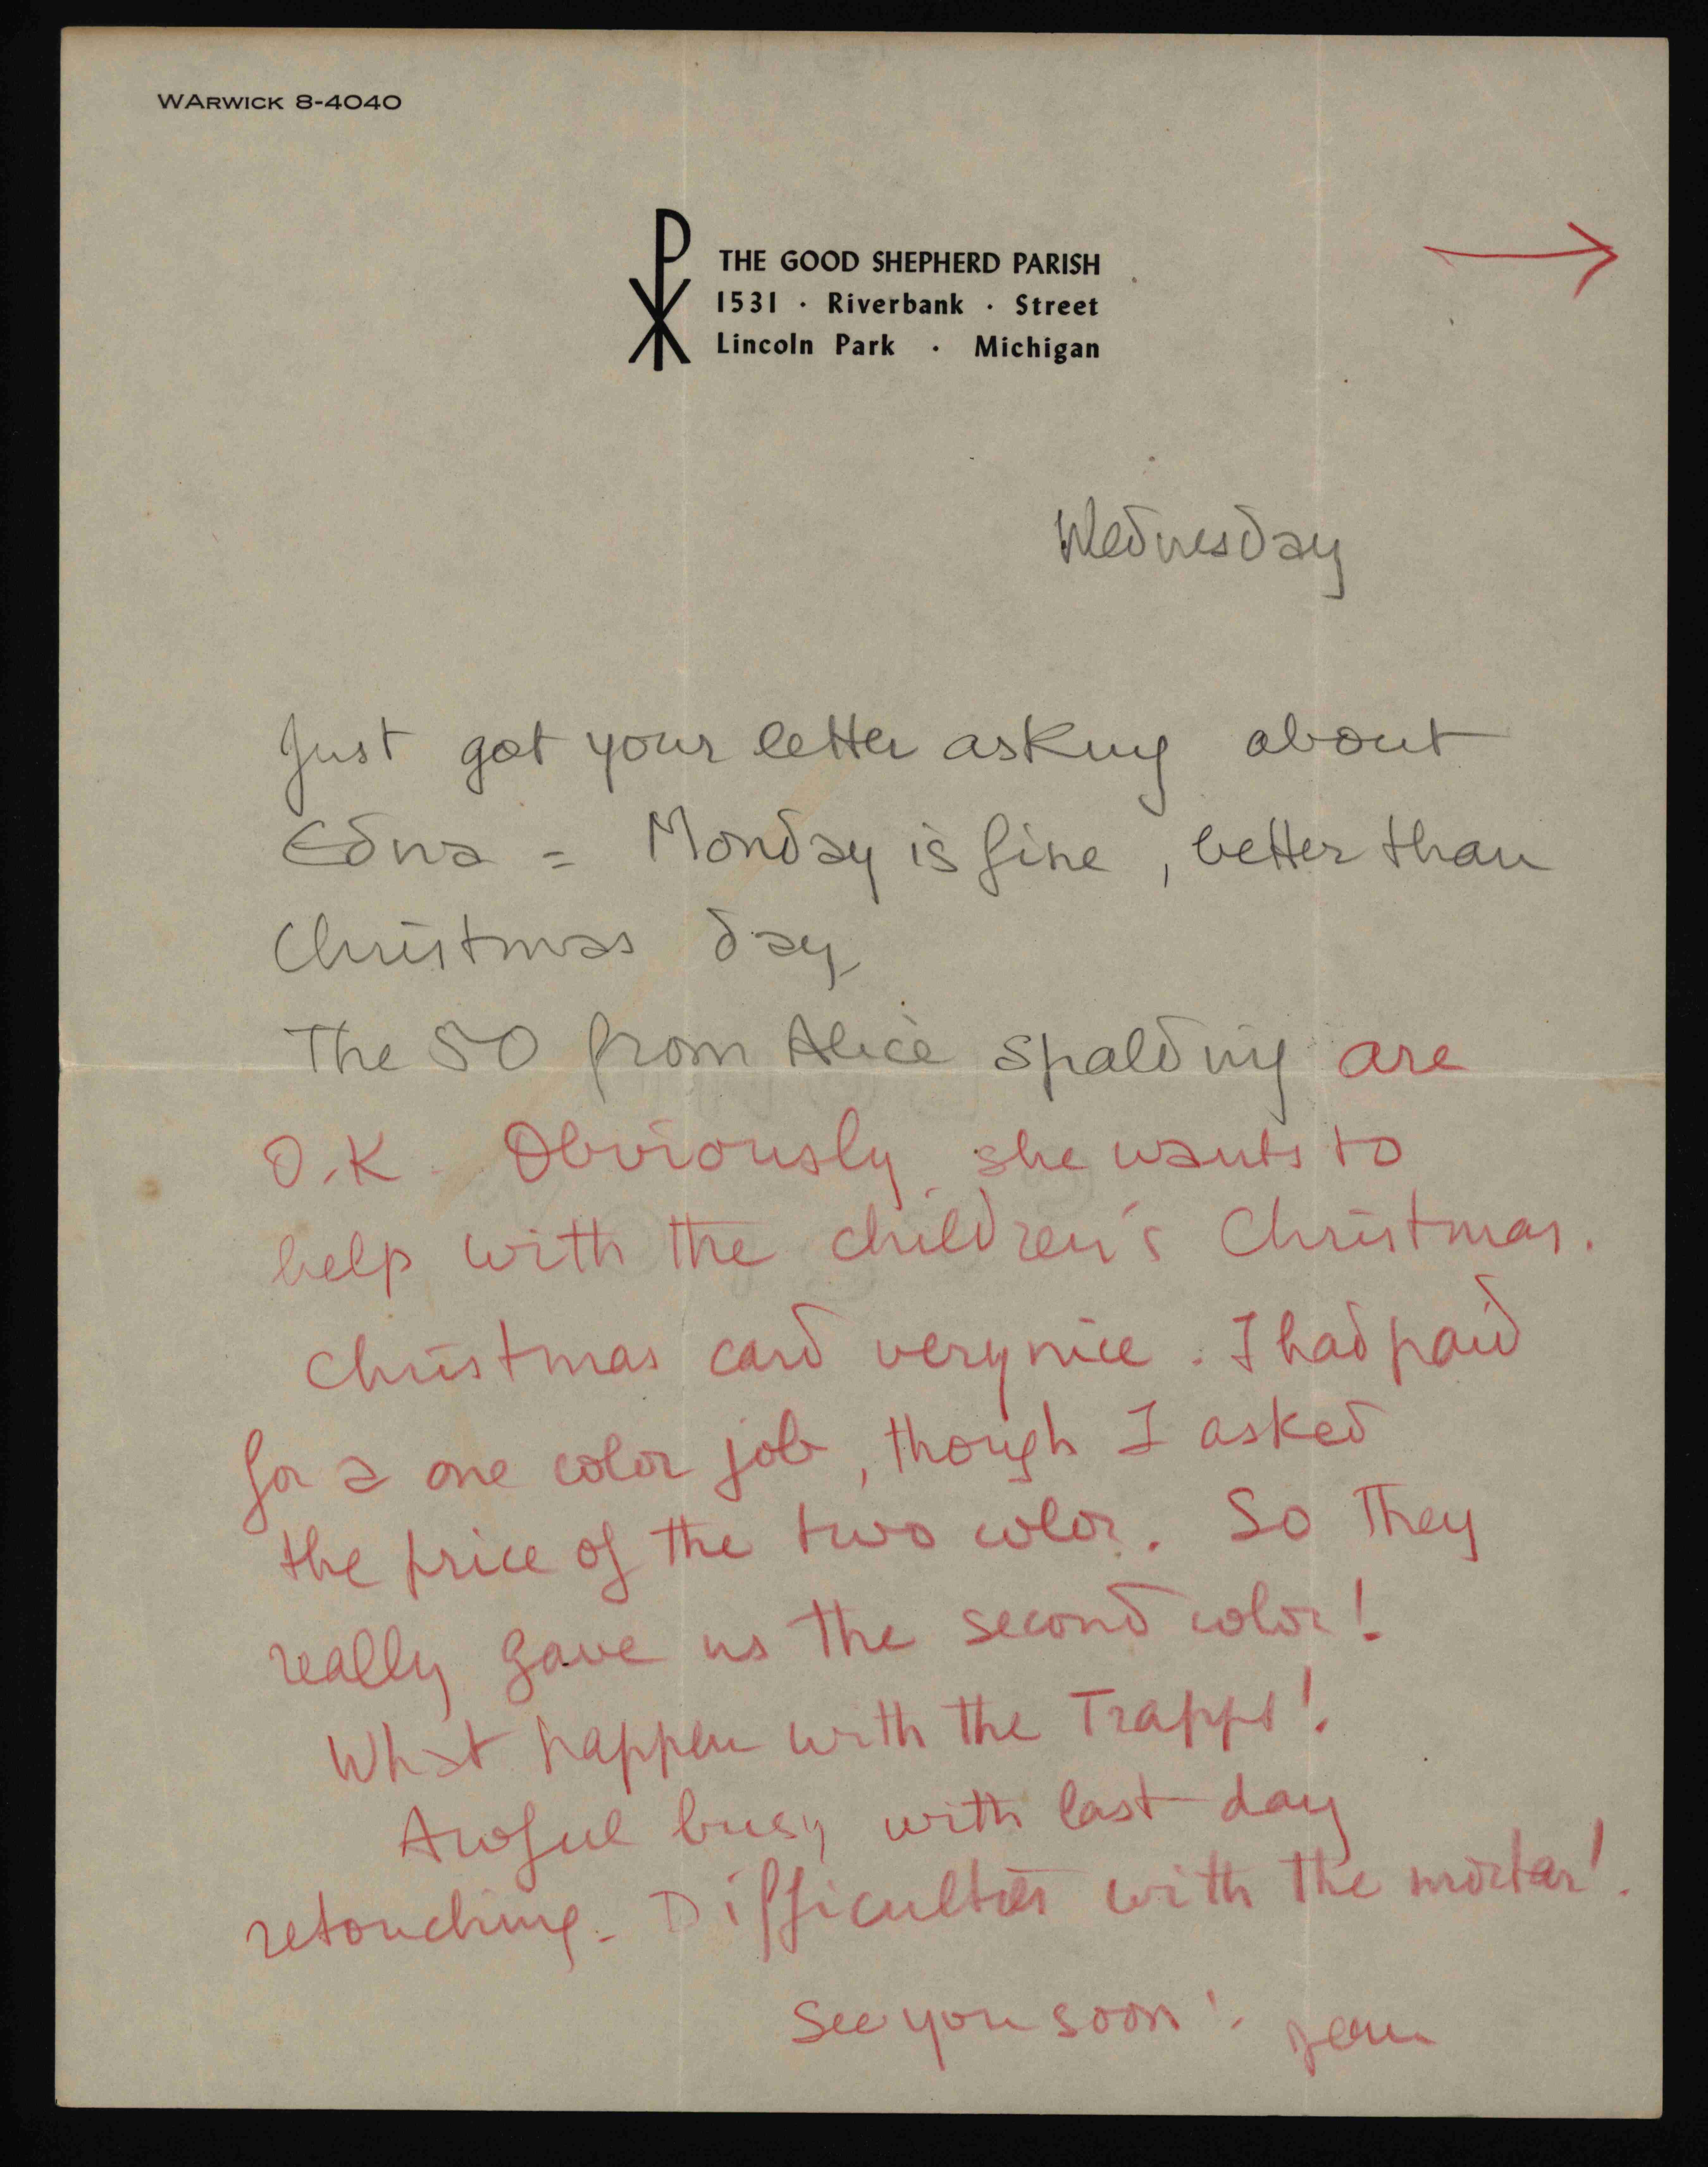 WARWICK 8-4040
THE GOOD SHEPHERD PARISH
1531 · Riverbank · Street
Lincoln Park · Michigan
Wednesday
Just got your letter asking about
Edna = Monday is fine, better than
Christmas day
The 50 from Alice Spalding are
O.K. Obviously she wants to
help with the children's Christmas.
Christmas card very nice. I had paid
for a one color job, though I asked
the price of the two color. So they
really gave us the second color!
What happen with the Trapps!
Awful busy with last day
retouching. Difficulties with the mortar!
See you soon! Jean